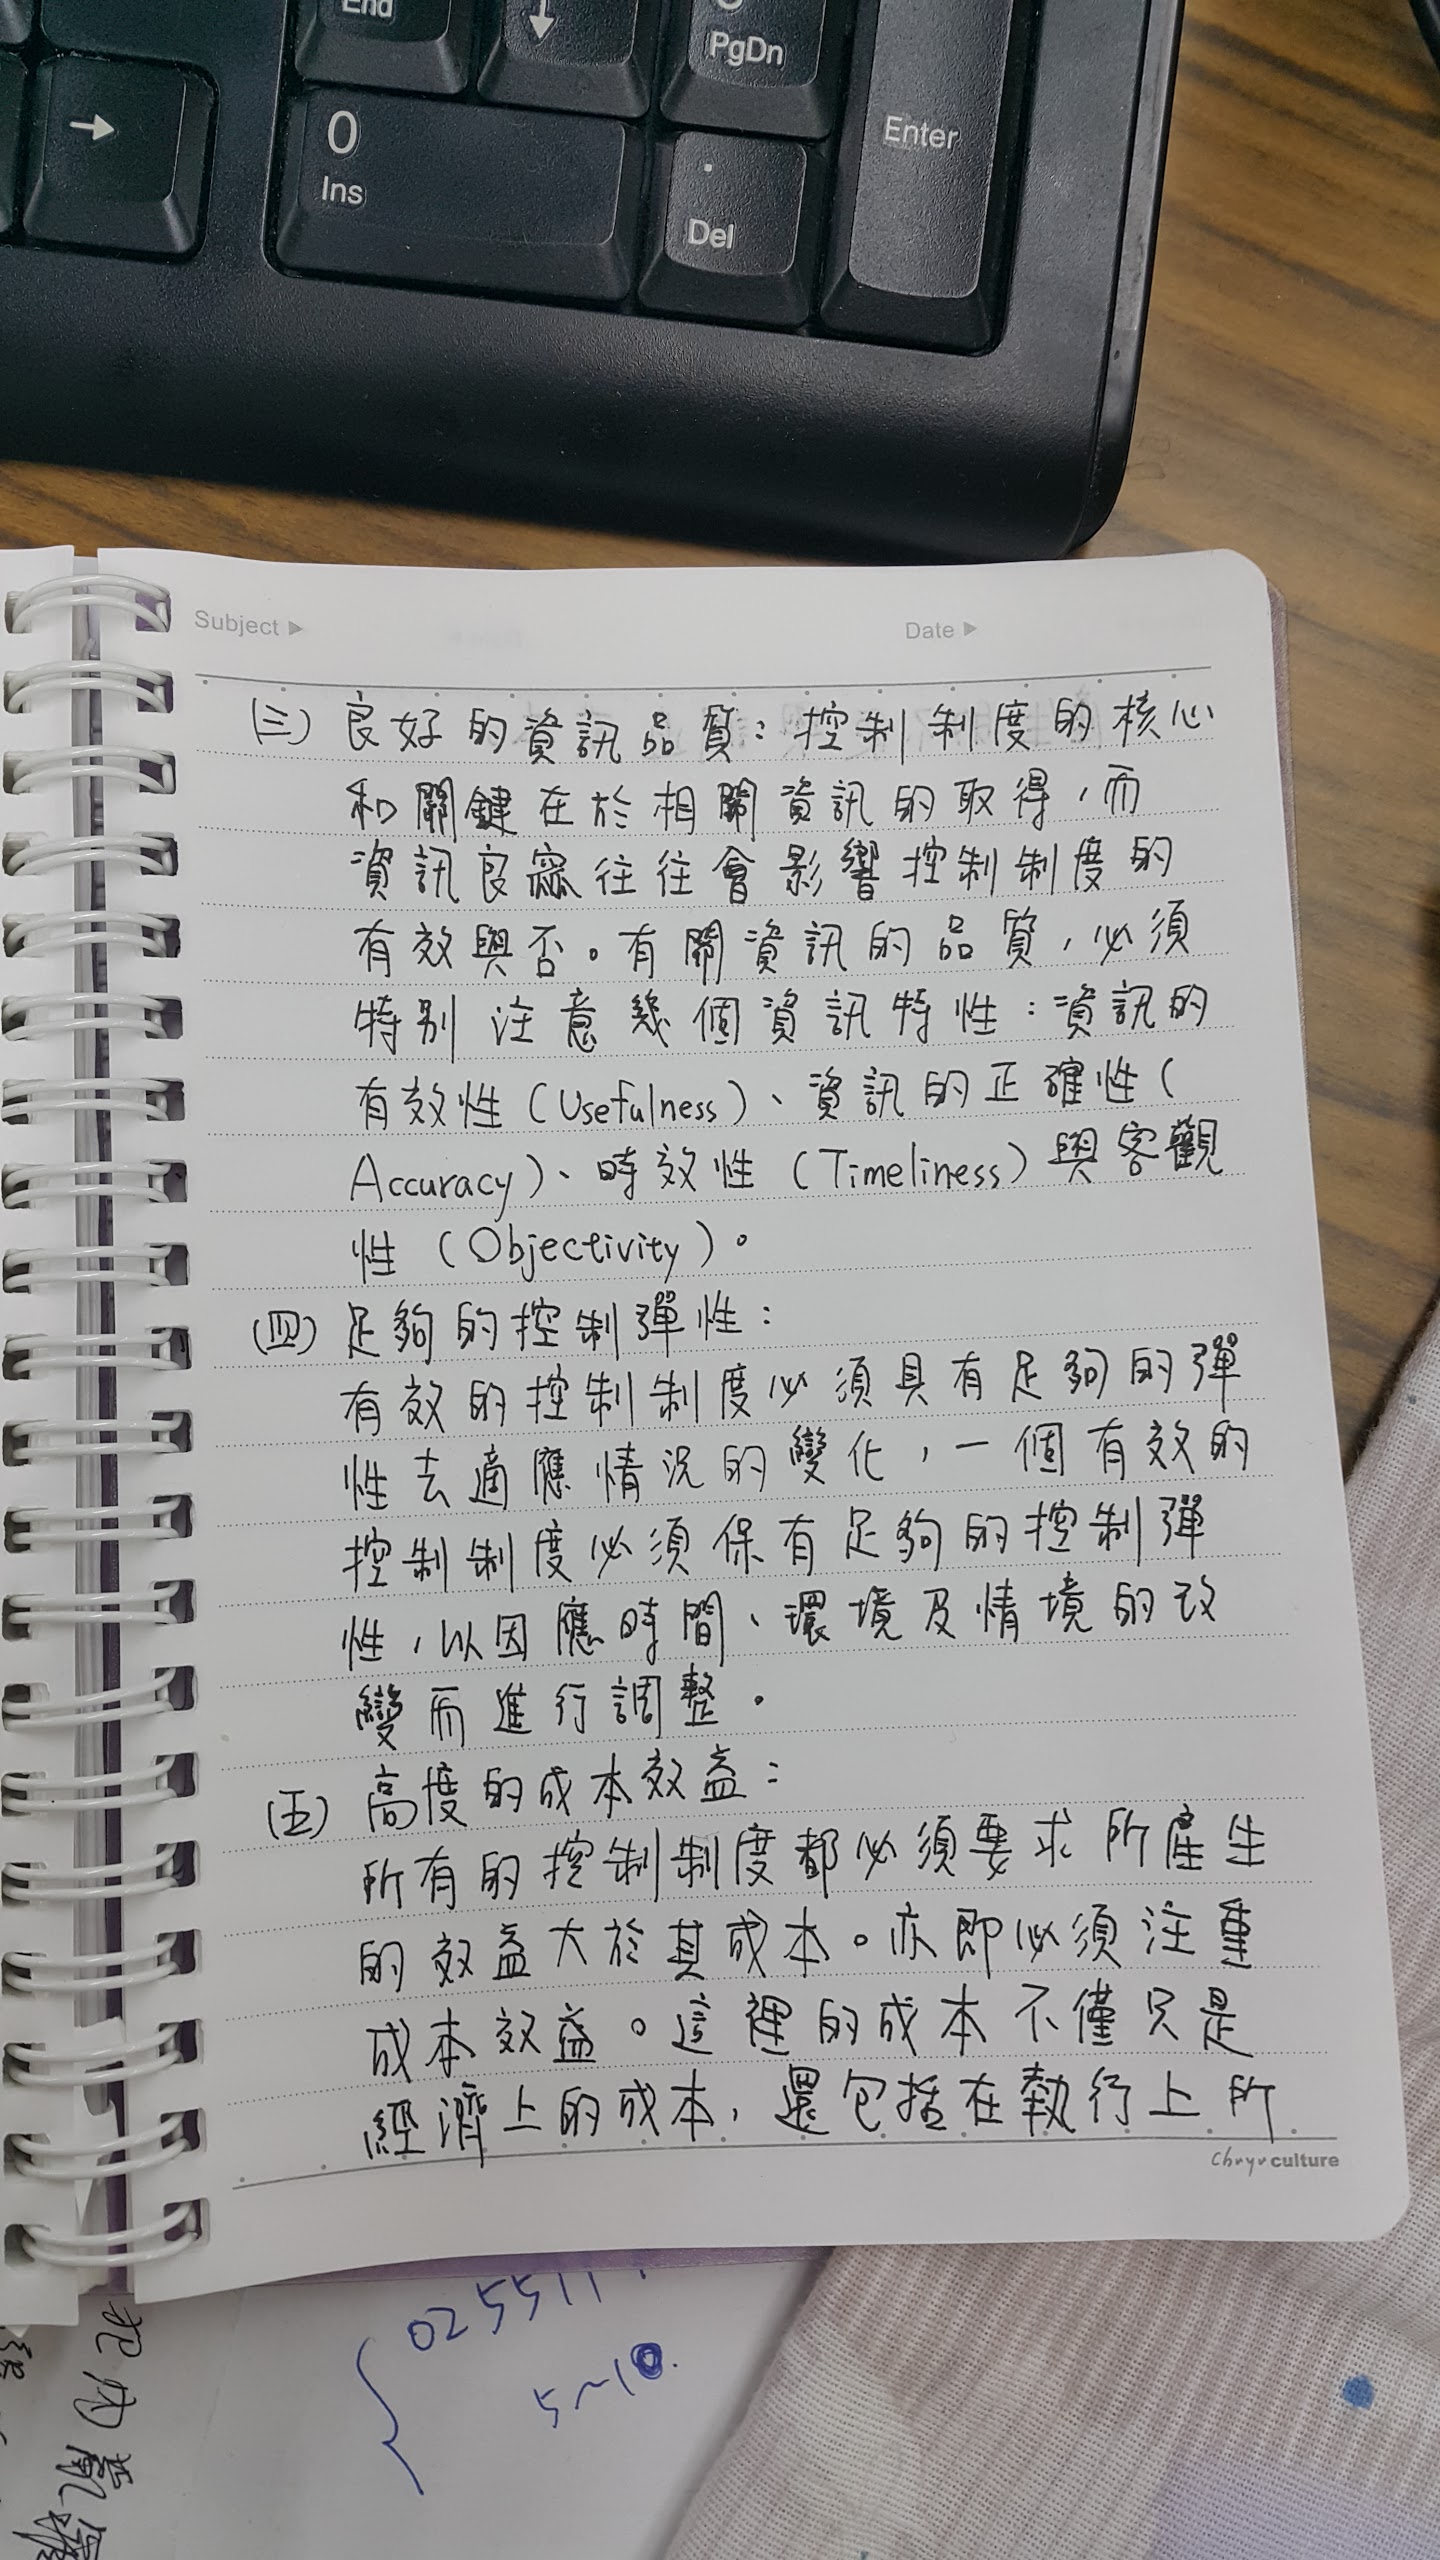 End
↓
PgDn
→
0
Ins
.
Del
Enter
Subject ▶
Date ▶
(三) 良好的資訊品質：控制制度的核心
和關鍵在於相關資訊的取得，而
資訊良窳往往會影響控制制度的
有效與否。有關資訊的品質，必須
特別注意幾個資訊特性：資訊的
有效性（Usefulness）、資訊的正確性（
Accuracy）、時效性（Timeliness）與客觀
性（Objectivity）。
(四) 足夠的控制彈性：
有效的控制制度必須具有足夠的彈
性去適應情況的變化，一個有效的
控制制度必須保有足夠的控制彈
性，以因應時間、環境及情境的改
變而進行調整。
(五) 高度的成本效益：
所有的控制制度都必須要求所產生
的效益大於其成本。亦即必須注重
成本效益。這裡的成本不僅只是
經濟上的成本，還包括在執行上所
Chuyu culture
5~10.